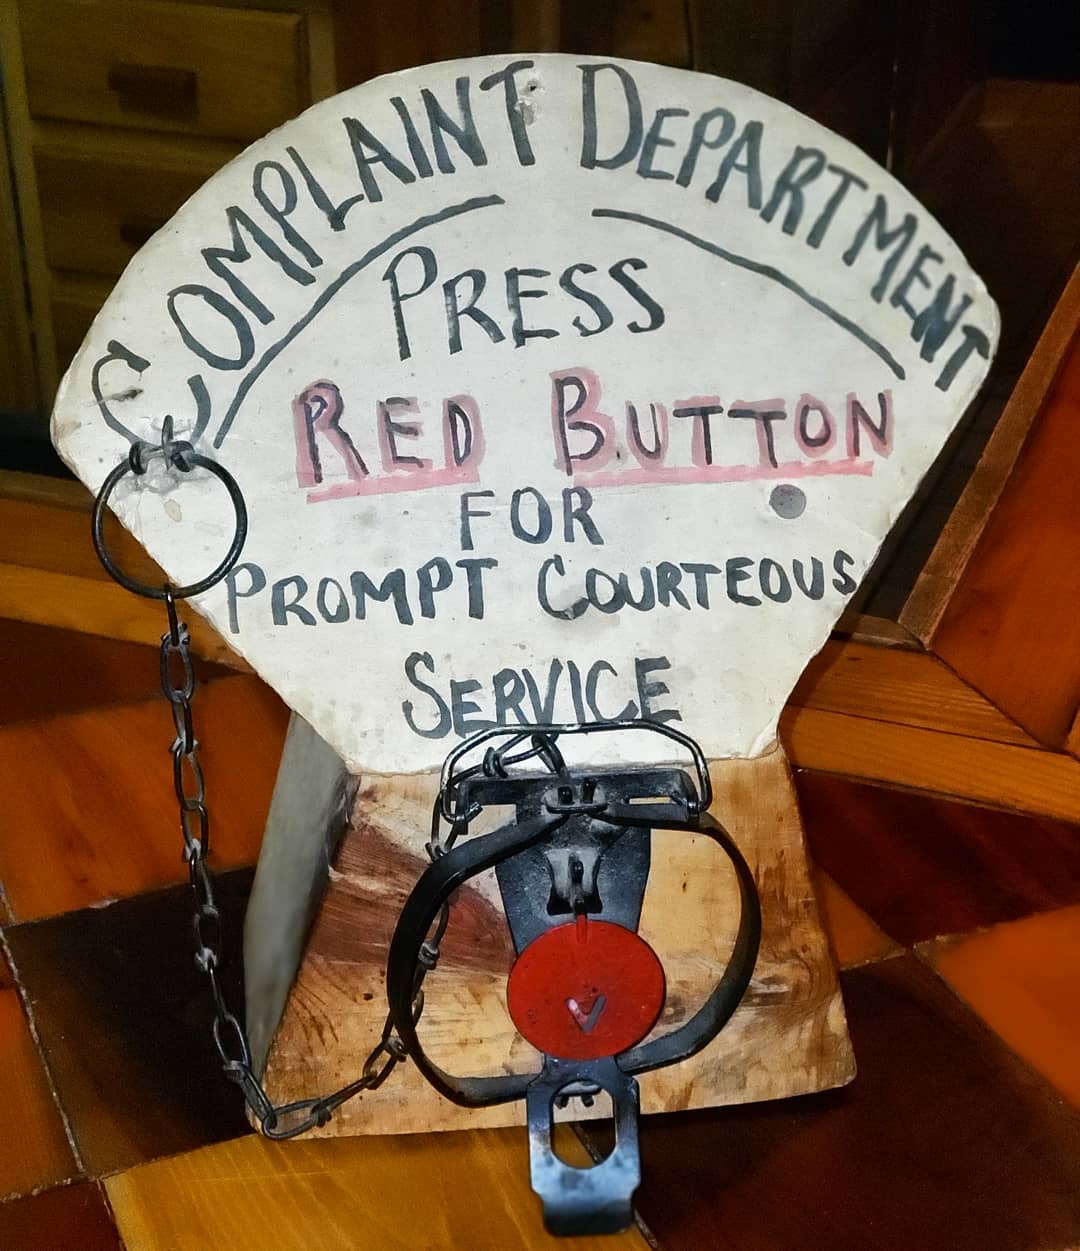 COMPLAINT DEPARTMENT
PRESS
RED BUTTON
FOR
PROMPT COURTEOUS
SERVICE
V